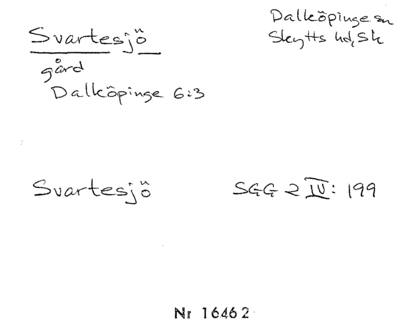 Svartesjö
Dalköpinge sn
Skytts hd, Sk
gård
Dalköpinge 6:3
Svartesjö SGG 2 IV: 199
Nr 16462